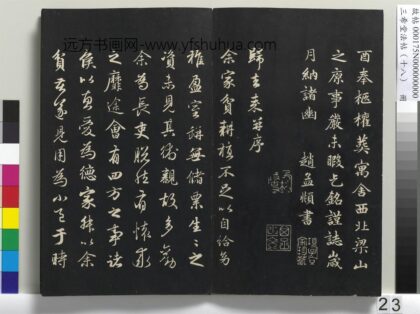 远方书画网-www.yfshuhua.com
故帖 000175N000000000
三希堂法帖(十八)
酉奉柩權葬寓舍西北梁山
之原事嚴未暇乞銘謹誌歲
月納諸幽 趙孟頫書
歸去來并序
余家貧耕植不足以自給幼
稚盈室缾無儲粟生生之
資未見其術親故多勸
余為長吏脫然有懷求
之靡途會有四方之事諸
侯以惠愛為德家叔以余
貧苦遂見用為小邑于時
23